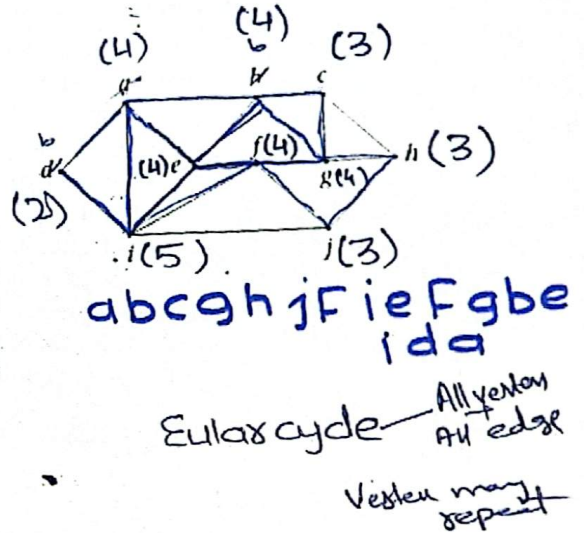 (4) (4) (3)
b
a b c
b
d (4) e f(4) g(4) h (3)
(2)
i(5) j(3)
abcghjFieFgbe
ida
Eular cycle
All
All edge
may
repeat